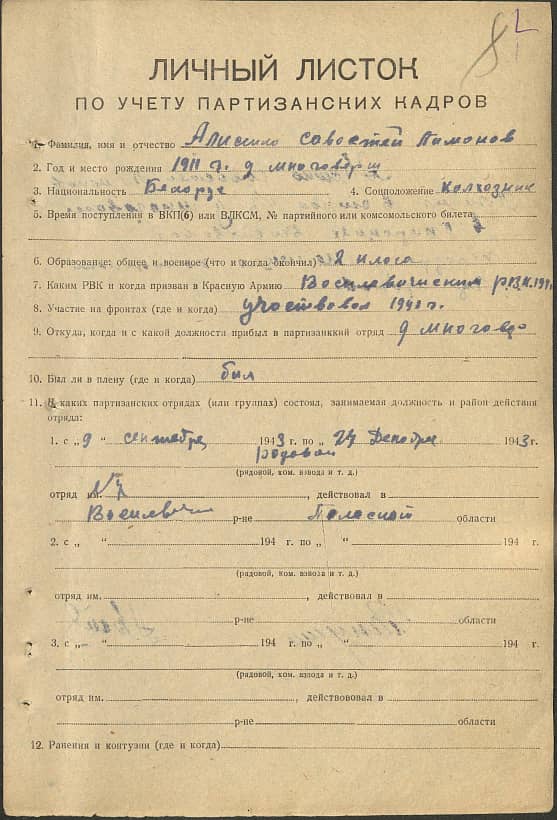 ЛИЧНЫЙ ЛИСТОК
ПО УЧЕТУ ПАРТИЗАНСКИХ КАДРОВ
1. Фамилия, имя и отчество Савостей
2. Год и место рождения 1911 г. д
3. Национальность 4. Соцположение Колхозник
5. Время поступления в ВКП(б) или ВЛКСМ, № партийного или комсомольского билета
6. Образование: общее и военное (что и когда окончил) 2 класа
7. Каким РВК и когда призван в Красную Армию
8. Участие на фронтах (где и когда) участвовал г.
9. Откуда, когда и с какой должности прибыл в партизанккий отряд д
10. Был ли в плену (где и когда) был
11. В каких партизанских отрядах (или группах) состоял, занимаемая должность и район действия
отряда:
1. с „9 “ сентября 1943 г. по „ “ Декабря 1943 г.
родовой
(рядовой, ком. взвода и т. д.)
отряд им. , действовал в
р-не области
2. с „ “ 194 г. по „ “ 194 г.
(рядовой, ком. взвода и т. д.)
отряд им. , действовал в
р-не области
3. с „ “ 194 г. по „ “ 194 г.
(рядовой, ком. взвода и т. д.)
отряд им. , действововал в
р-не области
12. Ранения и контузии (где и когда)